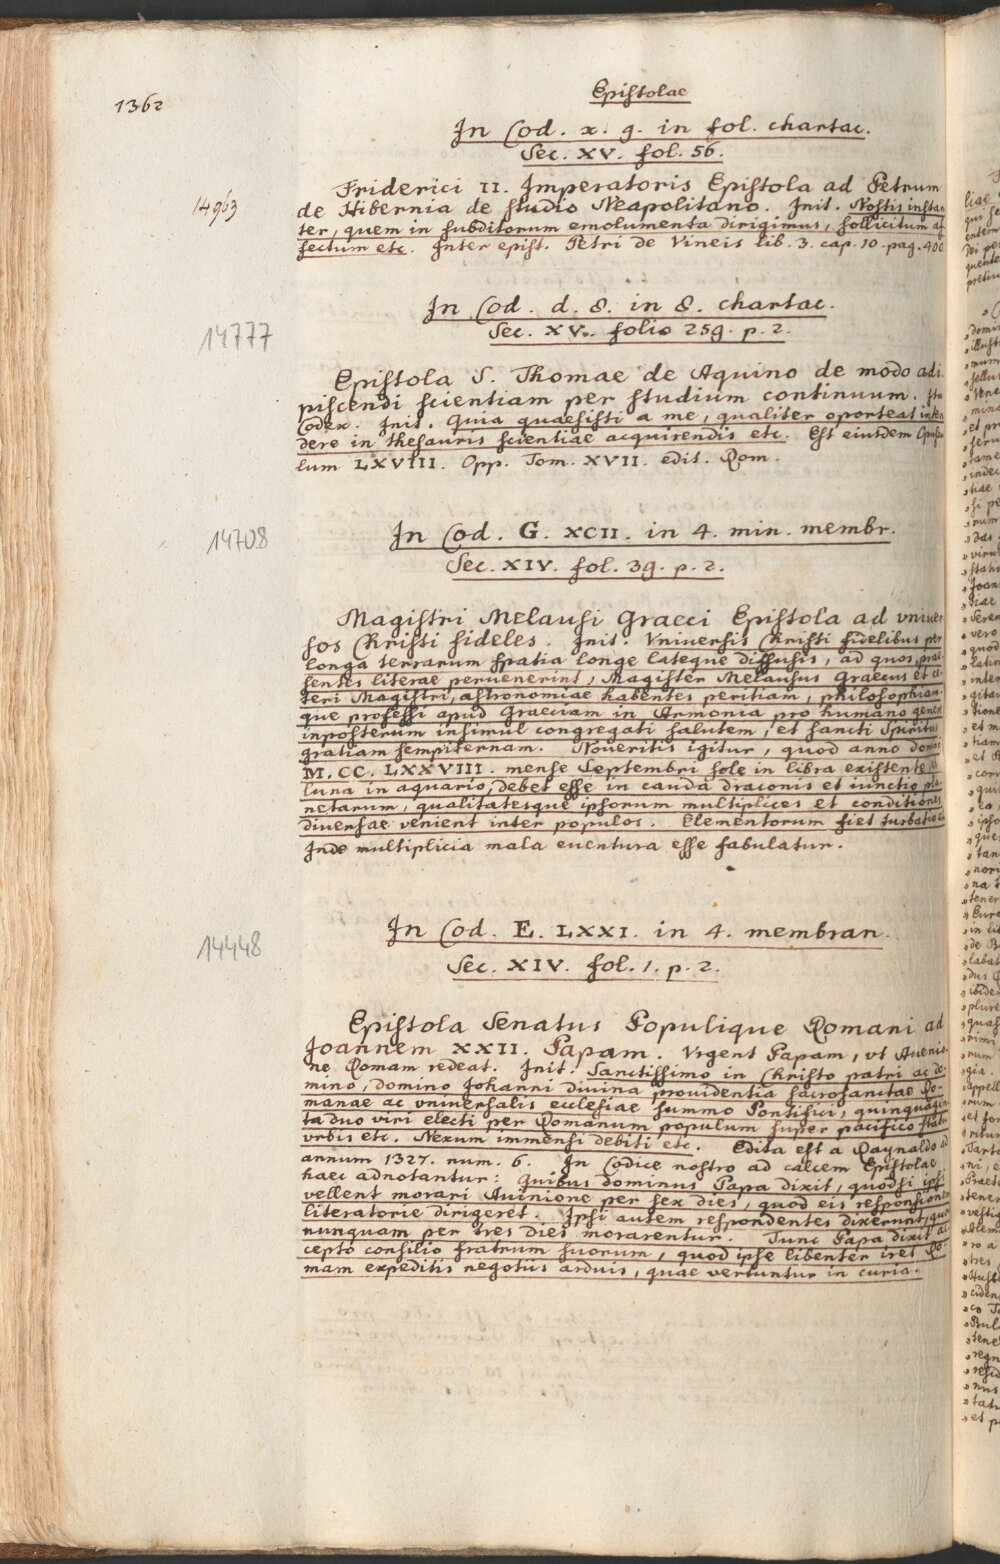 1362
Epistolae
In Cod. x. 9. in fol. chartac.
Sec. XV. fol. 56.
14963
Friderici II. Imperatoris Epistola ad Petrum
de Hibernia de studio Neapolitano. Init. Nostis instan
ter, quem in subditorum emolumenta dirigimus, sollicitum af
fectum etc. Inter epist. Petri de Vineis lib. 3. cap. 10. pag. 400
In Cod. d. 8. in 8. chartac.
Sec. XV. folio 259. p. 2.
14777
Epistola S. Thomae de Aquino de modo adi
piscendi scientiam per studium continuum. Ita
Codex. Init. Quia quaesisti a me, qualiter oporteat inten
dere in thesauris scientiae acquirendis etc. Est eiusdem Opuscu
lum LXVIII. Opp. Tom. XVII. edit. Rom.
14708
In Cod. G. XCII. in 4. min. membr.
Sec. XIV. fol. 39. p. 2.
Magistri Melausi Graeci Epistola ad vniuer
sos Christi fideles. Init. Vniuersis Christi fidelibus per
longa terrarum spatia longe lateque diffusis, ad quos prae
sentes literae peruenerint, Magister Melausus Graecus et c
teri Magistri, astronomiae habentes peritiam, philosophiam
que professi apud Graeciam in Armonia pro humano genere
inposterum insimul congregati salutem, et sancti Spiritus
gratiam sempiternam. Noueritis igitur, quod anno domini
M. CC. LXXVIII. mense Septembri sole in libra existente
luna in aquario, debet esse in cauda draconis et iunctio pla
netarum, qualitatesque ipsorum multiplices et conditiones
diuersae venient inter populos. Elementorum fiet turbatio etc
Inde multiplicia mala euentura esse fabulatur.
14448
In Cod. E. LXXI. in 4. membran.
Sec. XIV. fol. 1. p. 2.
Epistola Senatus Populique Romani ad
Joannem XXII. Papam. Vrgent Papam, vt Auenio
ne Romam redeat. Init. Sanctissimo in Christo patri ac do
mino, domino Johanni diuina prouidentia sacrosanctae Ro-
manae ac vniuersalis ecclesiae summo Pontifici, quinquagin
ta duo viri electi per Romanum populum super pacifico statu
vrbis etc. Nexum immensi debiti etc. Edita est a Raynaldo ad
annum 1327. num. 6. In Codice nostro ad calcem Epistolae
haec adnotantur: Quibus dominus Papa dixit, quodsi ipsi
vellent morari Auinione per sex dies, quod eis responsionem
literatorie dirigeret. Ipsi autem respondentes dixerunt, quod
nunquam per tres dies morarentur. Tunc Papa dixit ac
cepto consilio fratrum suorum, quod ipse libenter iret Ro-
mam expeditis negotiis arduis, quae vertuntur in curia.